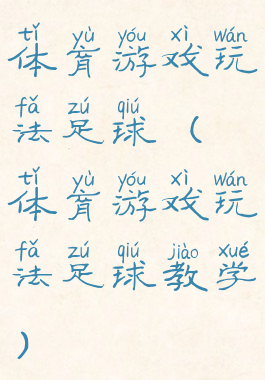 tǐ yù yóu xì wán
体育游戏玩
fǎ zú qiú
法足球（
tǐ yù yóu xì wán
体育游戏玩
fǎ zú qiú jiào xué
法足球教学
）